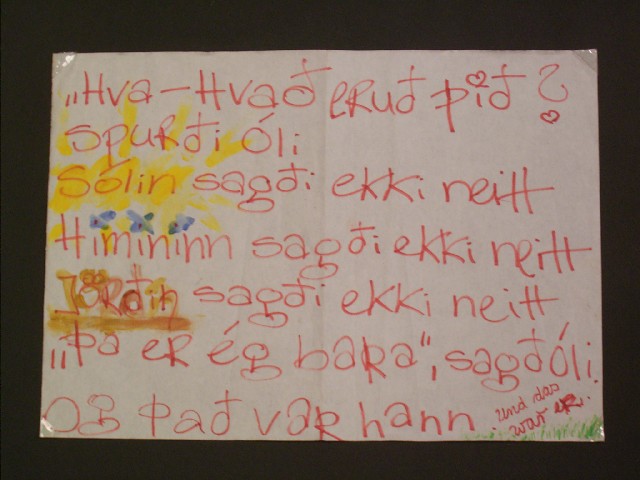 „Hva – Hvað eruð þið?
spurði Óli
Sólin sagði ekki neitt
Himininn sagði ekki neitt
Jörðin sagði ekki neitt
„Þa er ég bara", sagð Óli.
Og það var hann
und das
war er.